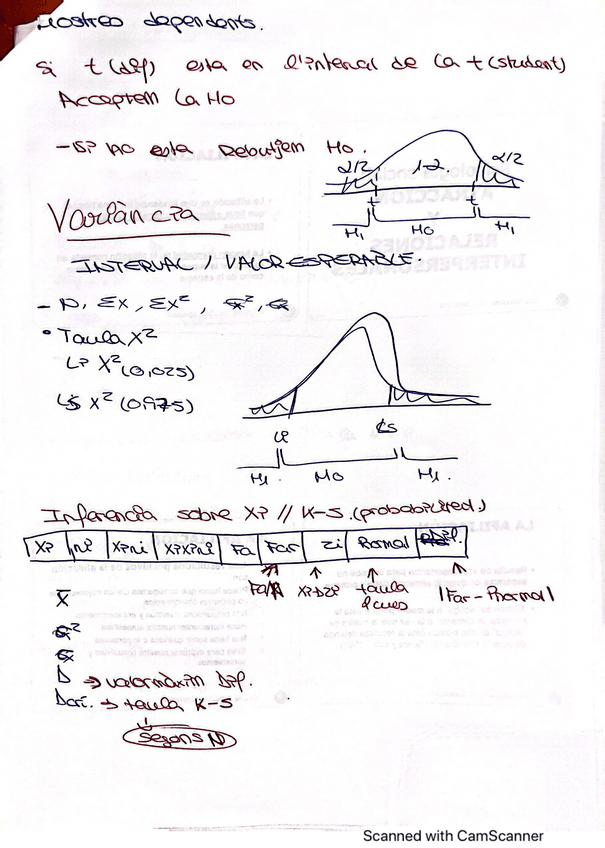 Mostreo dependents.
Si t (dif) esta en l'interval de la t (student)
Acceptem la Ho
- Si no esta Rebutjem Ho.
α/2 1-α α/2
t t
H1 Ho H1
Variància
INTERVAL / VALOR ESPERABLE.
- N, Σx, Σx², σ², σ
• Taula X²
Li X² (0,025)
Ls X² (0,975)
Li Ls
H1 Ho H1.
Inferencia sobre Xi // K-S. (probabilited.)
Xi ni Xini XiXini Fa Far Zi Pnormal Dif.
Fa/N Xi→Zi taula |Far - Pnormal|
dcues
X̄
σ²
σ
D → valor màxin Dif.
Dcrí. → taula K-S
Segons N
Scanned with CamScanner